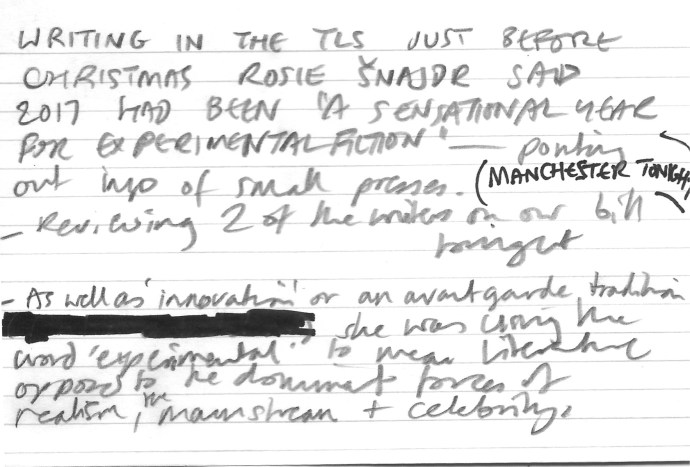 WRITING IN THE TLS JUST BEFORE
CHRISTMAS ROSIE ŠNAJDR SAID
2017 HAD BEEN "A SENSATIONAL YEAR
FOR EXPERIMENTAL FICTION" — pointing
out impo of small presses. (MANCHESTER TONIGHT)
- Reviewing 2 of the writers on our bill
tonight
- As well as 'innovation' or an avant garde tradition
she was using the
word 'experimental' to mean literature
opposed to the dominant forces of
realism, the mainstream + celebrity.